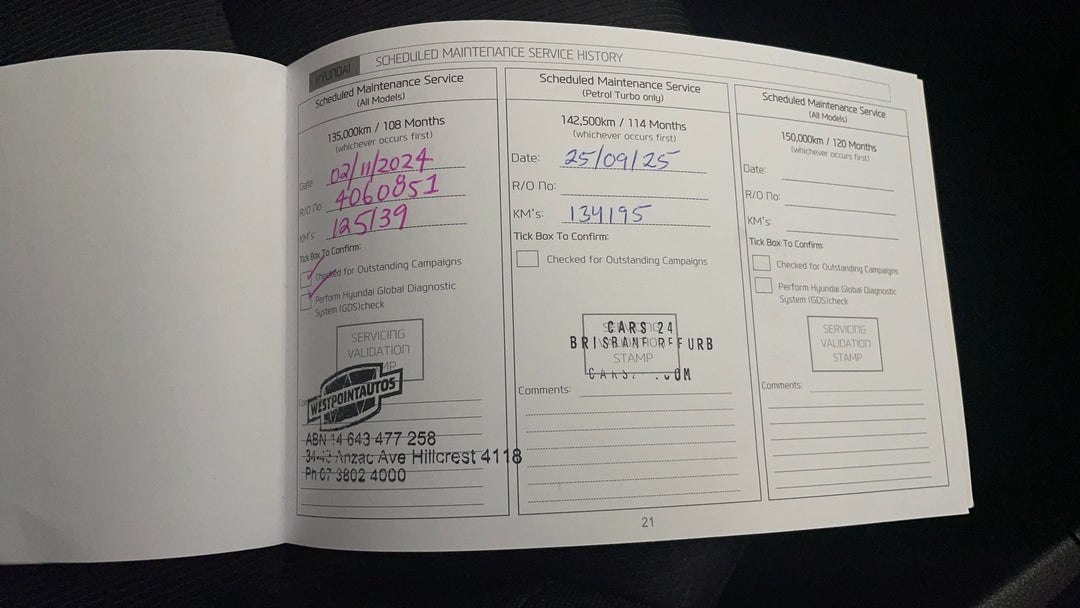 HYUNDAI
SCHEDULED MAINTENANCE SERVICE HISTORY
Scheduled Maintenance Service
(All Models)
135,000km / 108 Months
(whichever occurs first)
Date 02/11/2024
R/O No: 4060851
KM's: 125139
Tick Box To Confirm:
Checked for Outstanding Campaigns
Perform Hyundai Global Diagnostic
System (GDS)check
SERVICING
VALIDATION
WESTPOINTAUTOS
ABN 14 643 477 258
Anzac Ave Hillcrest 4118
Ph 07 3802 4000
Scheduled Maintenance Service
(Petrol Turbo only)
142,500km / 114 Months
(whichever occurs first)
Date: 25/09/25
R/O No:
KM's: 134195
Tick Box To Confirm:
Checked for Outstanding Campaigns
CARS 24
BRISBANE REFURB
STAMP
Comments:
Scheduled Maintenance Service
(All Models)
150,000km / 120 Months
(whichever occurs first)
Date:
R/O No:
KM's:
Tick Box To Confirm:
Checked for Outstanding Campaigns
Perform Hyundai Global Diagnostic
System (GDS)check
SERVICING
VALIDATION
STAMP
Comments:
21